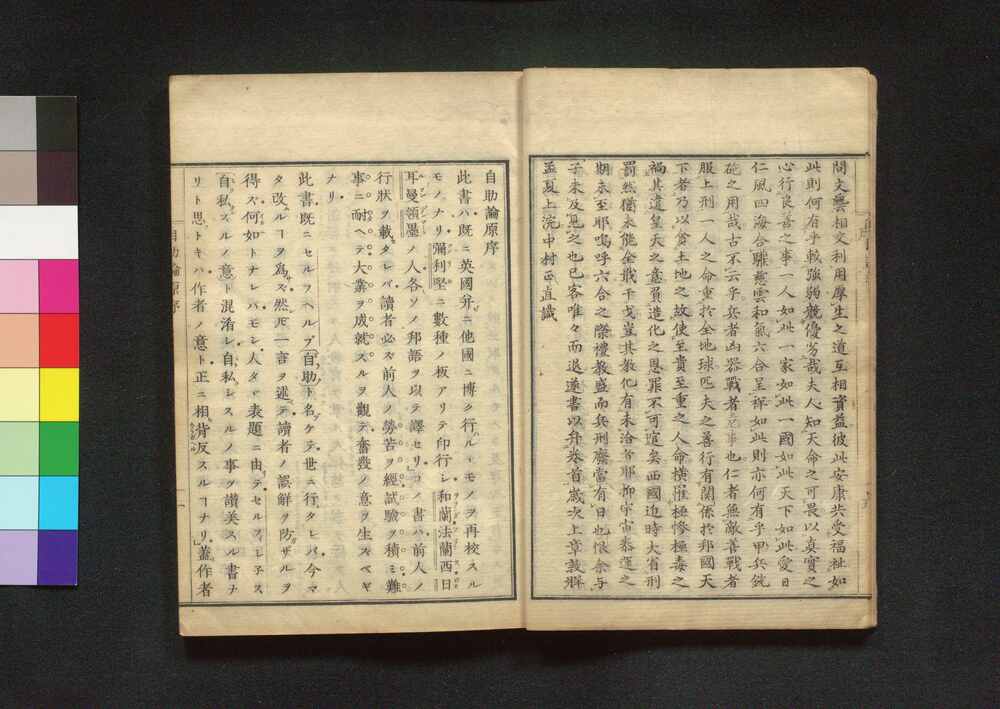 問文藝相交利用厚生之道互相資益彼此安康共受福祉如
此則何有乎較強弱競優劣哉夫人知天命之可畏以真實之
心行良善之事一人如此一家如此一國如此天下如此愛日
仁風四海合驩慈雲和氣六合呈祥如此則亦何有乎甲兵銃
砲之用哉古不云乎兵者凶器戰者危事也仁者無敵善戰者
服上刑一人之命重於全地球匹夫之善行有關係於邦國天
下者乃以貪土地之故使至貴至重之人命橫罹極慘極毒之
禍其違皇天之意負造化之恩罪不可逭矣西國近時大省刑
罰然猶未能全戢干戈豈其教化有未洽者耶抑宇宙泰運之
期未至耶嗚呼六合之際禮教盛而兵刑廢當有日也恨余與
子未及見之也已客唯々而退遂書以弁卷首歲次上章敦牂
孟夏上浣中村正直識
自助論原序
此書ハ既ニ英國幷ニ他國ニ博ク行ルヽモノヲ再校スル
モノナリ彌利堅ニ數種ノ板アリテ印行シ和蘭法蘭西日
耳曼領墨ノ人各ソノ邦語ヲ以テ譯セリコノ書ハ前人ノ
行狀ヲ載タレバ讀者必ズ前人ノ勞苦ヲ經試驗ヲ積ミ難
事ニ耐ヘテ大業ヲ成就スルヲ觀テ奮發ノ意ヲ生ズベキ
ナリ
此書既ニセルフヘルプ自助ト名ケテ世ニ行タレバ今マ
タ改ルヿヲ為ズ然𪜈一言ヲ述テ讀者ノ誤解ヲ防ザルヲ
得ズ何如トナレバモシ人タヾ表題ニ由テセルフィシ子ス
自私スルノ意ト混淆シ自私シスルノ事ヲ讃美スル書ナ
リト思トキハ作者ノ意ト正ニ相背反スルヿナリ蓋作者
自助論原序